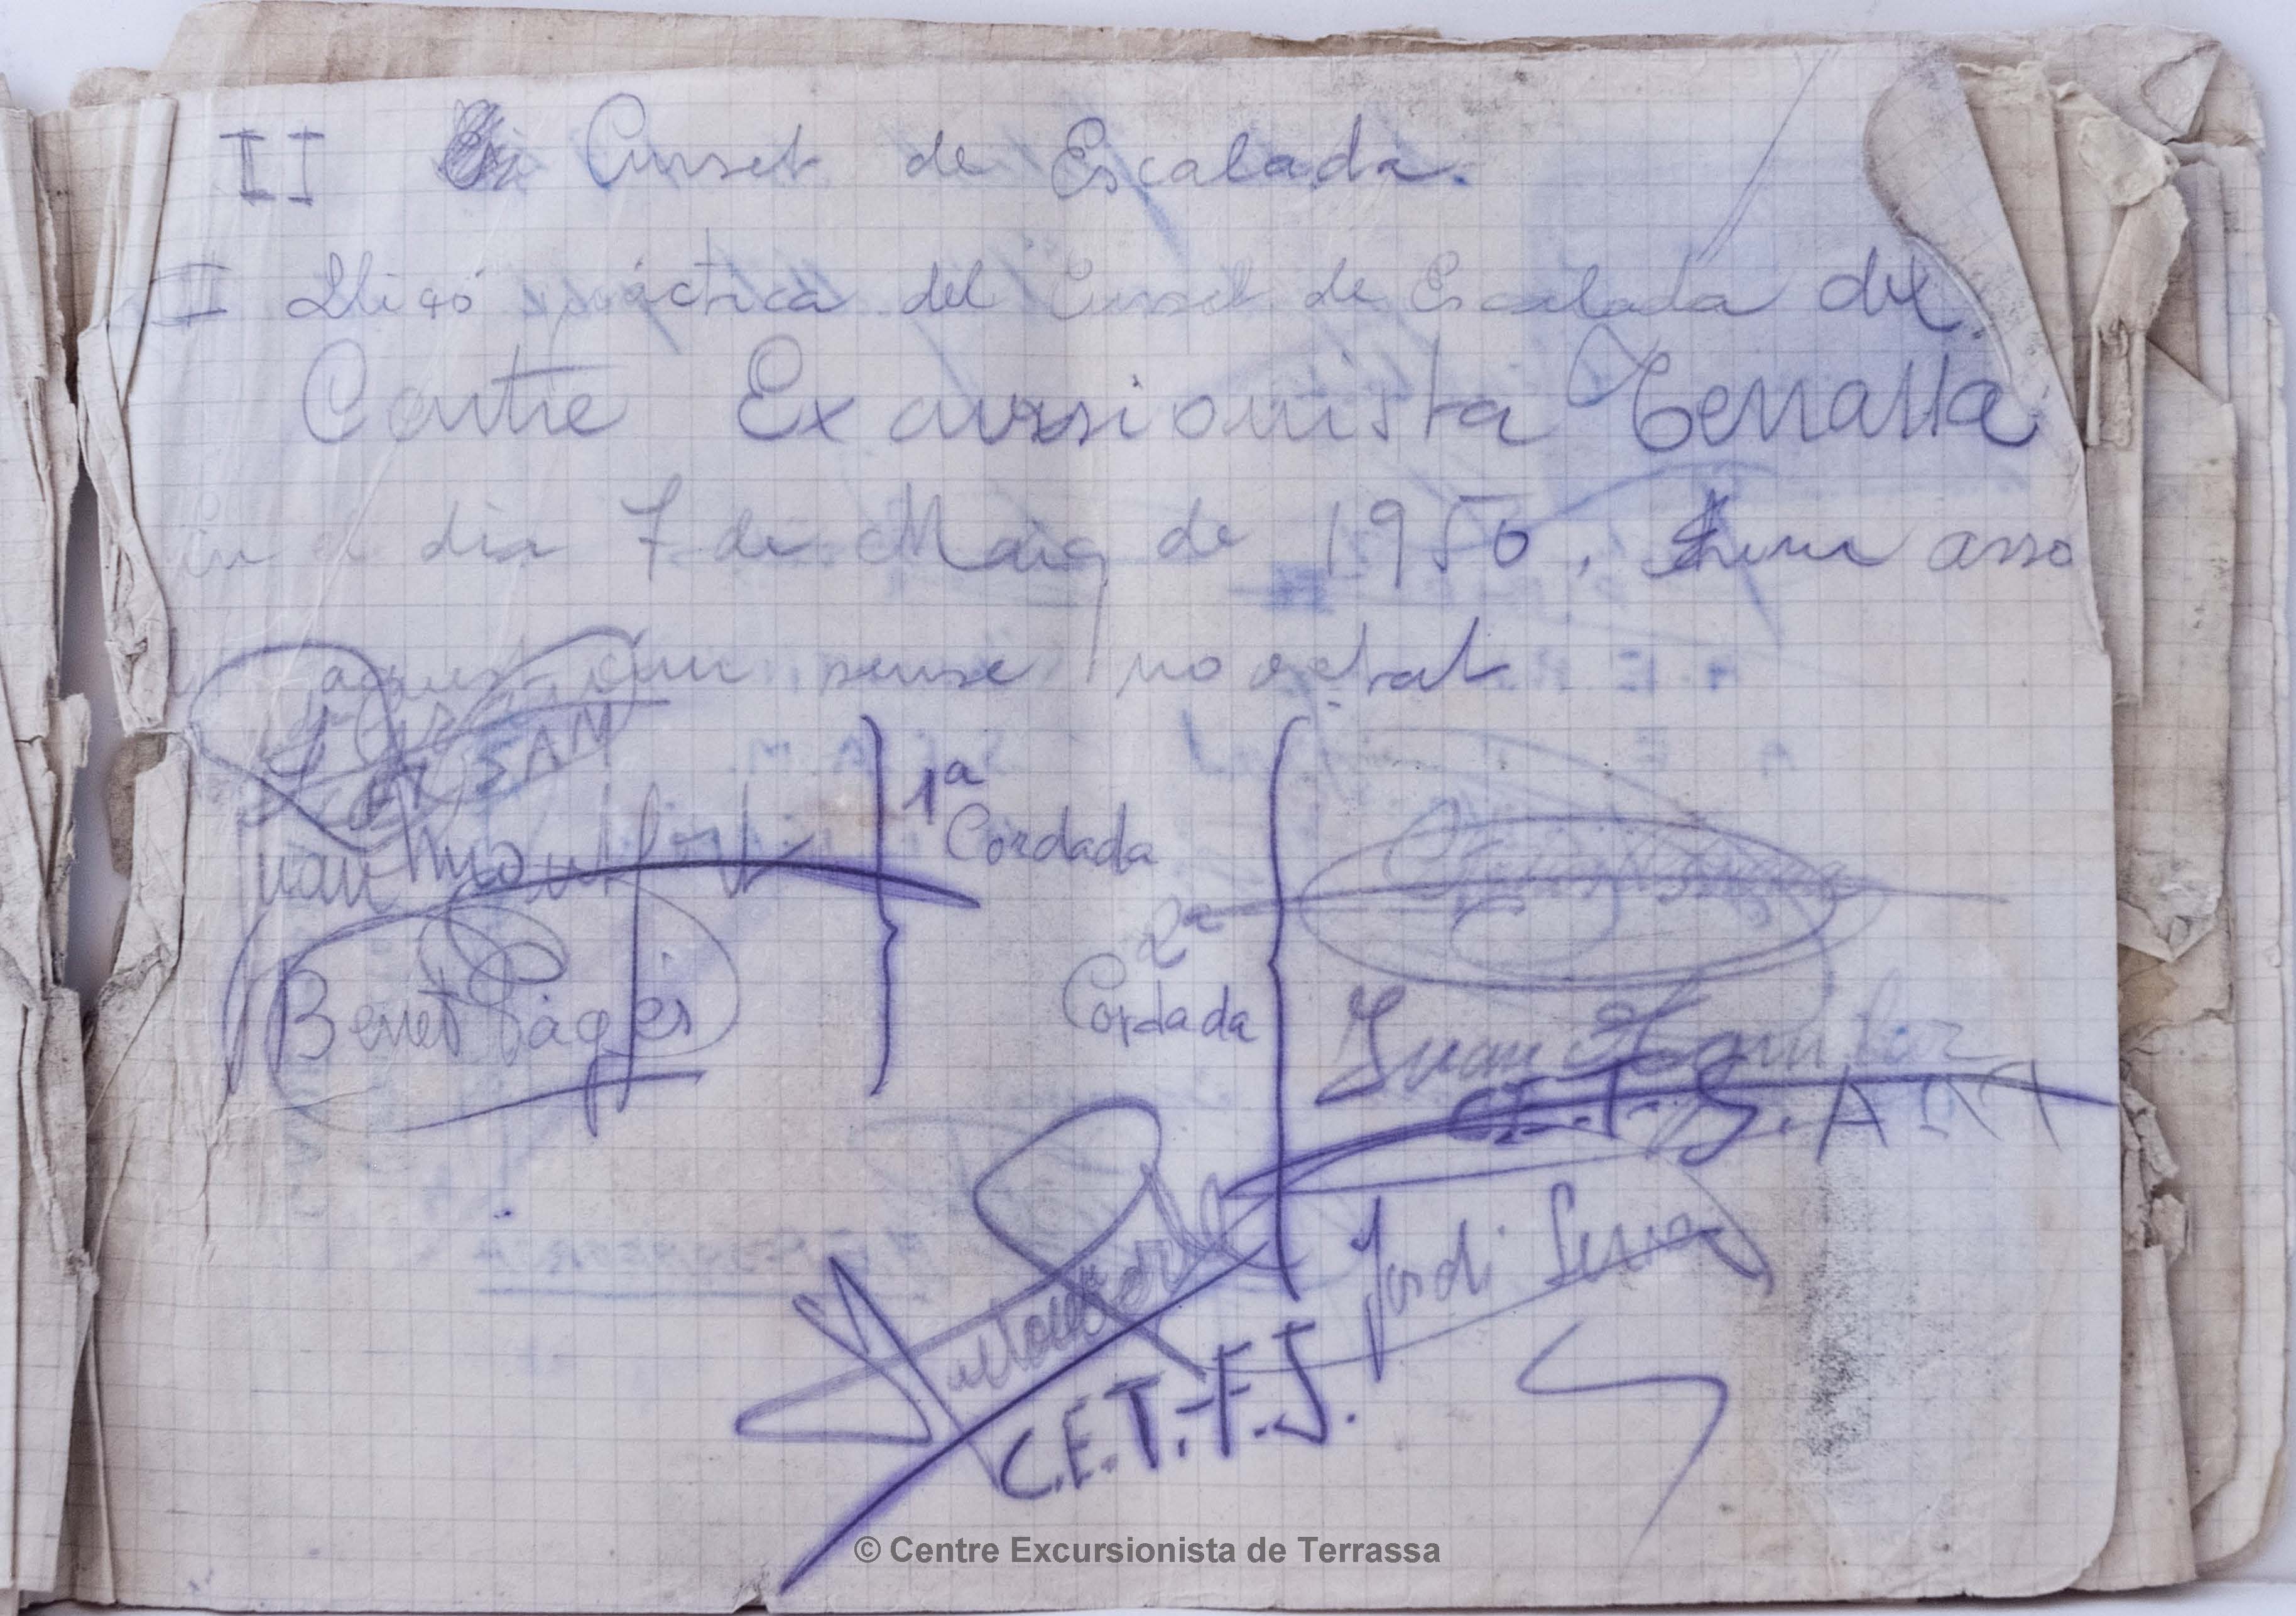 II Curset de Escalada.
I Lliçó práctica del Curset de Escalada del
Centre Excursionista Terrassa
en el dia 7 de Maig de 1950. hem asso
aquest cim sense novetat
SAM
Juan Monfort
1ª
Cordada
Benet Pàges
2ª
Cordada
Juan Aguilar
C.E.T. S.A.M
Jordi Serra
C.E.T.-F.J.
© Centre Excursionista de Terrassa